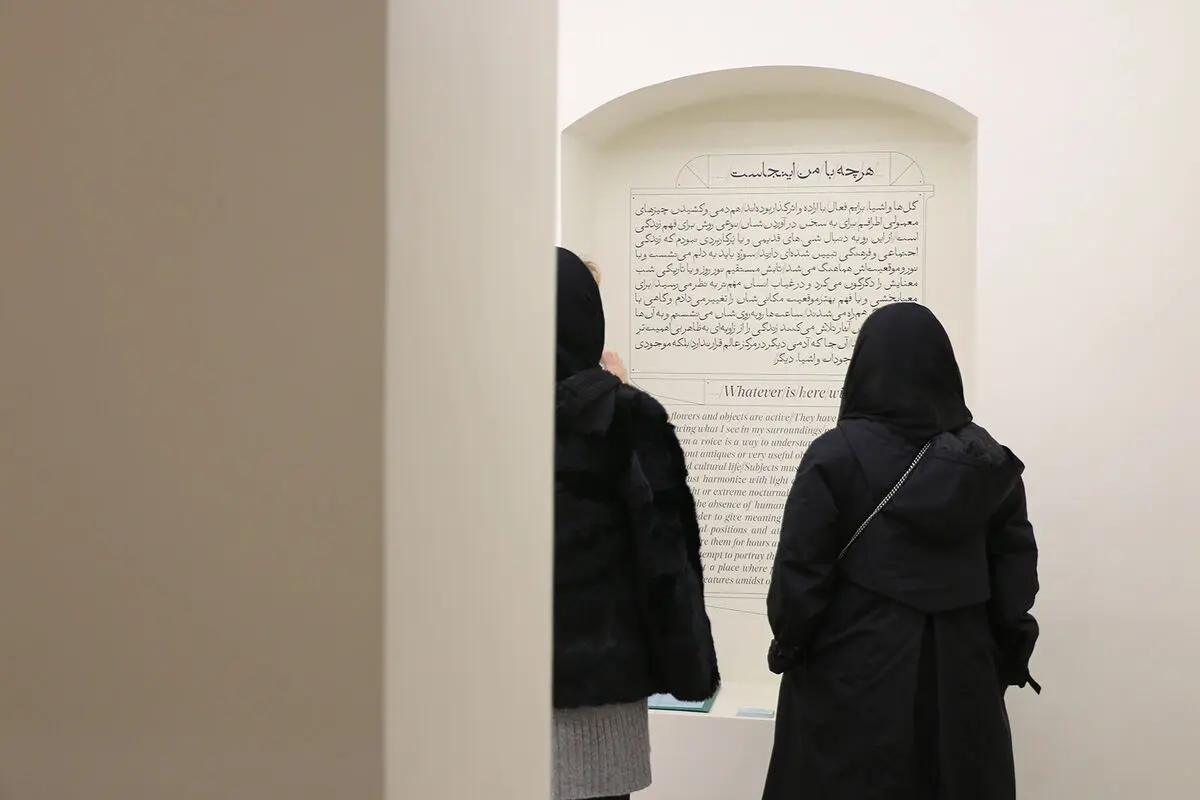 هرچه با من اینجاست
گل‌ها و اشیا، برایم فعال با اراده و اثرگذار بوده‌اند/ هم‌دمی و کشیدن چیزهای
معمولی اطرافم برای به سخن در آوردن‌شان/ نوعی روش برای فهم زندگی
است/ از این رو به دنبال شی‌های قدیمی و یا پرکاربردی نبودم که زندگی
اجتماعی و فرهنگی تبیین شده‌ای دارند/ سوژه باید به دلم می‌نشست و با
نور و موقعیت‌اش هماهنگ می‌شد/ تابش مستقیم نور روز و یا تاریکی شب
معنایش را دگرگون می‌کرد و در غیاب انسان مهم‌تر به نظر می‌رسید/ برای
معنابخشی و یا فهم بهتر موقعیت مکانی‌شان را تغییر می‌دادم و گاهی با
هم‌راه می‌شدند/ ساعت‌ها روبه‌روی‌شان می‌نشستم و به آن‌ها
آثار تلاش می‌کنند زندگی را از زاویه‌ای به ظاهر بی‌اهمیت‌تر
آن‌جا که آدمی دیگر در مرکز عالم قرار ندارد/ بلکه موجودی
موجودات و اشیا، دیگر/
/Whatever/is/here/wi
flowers and objects are active/They have
wing what I see in my surroundings
m a voice is a way to understa
out antiques or very useful o
d cultural life/Subjects mus
ust harmonize with light
ht or extreme nocturna
he absence of human
der to give meaning
al positions and at
re them for hours a
tempt to portray th
t a place where
reatures amidst o